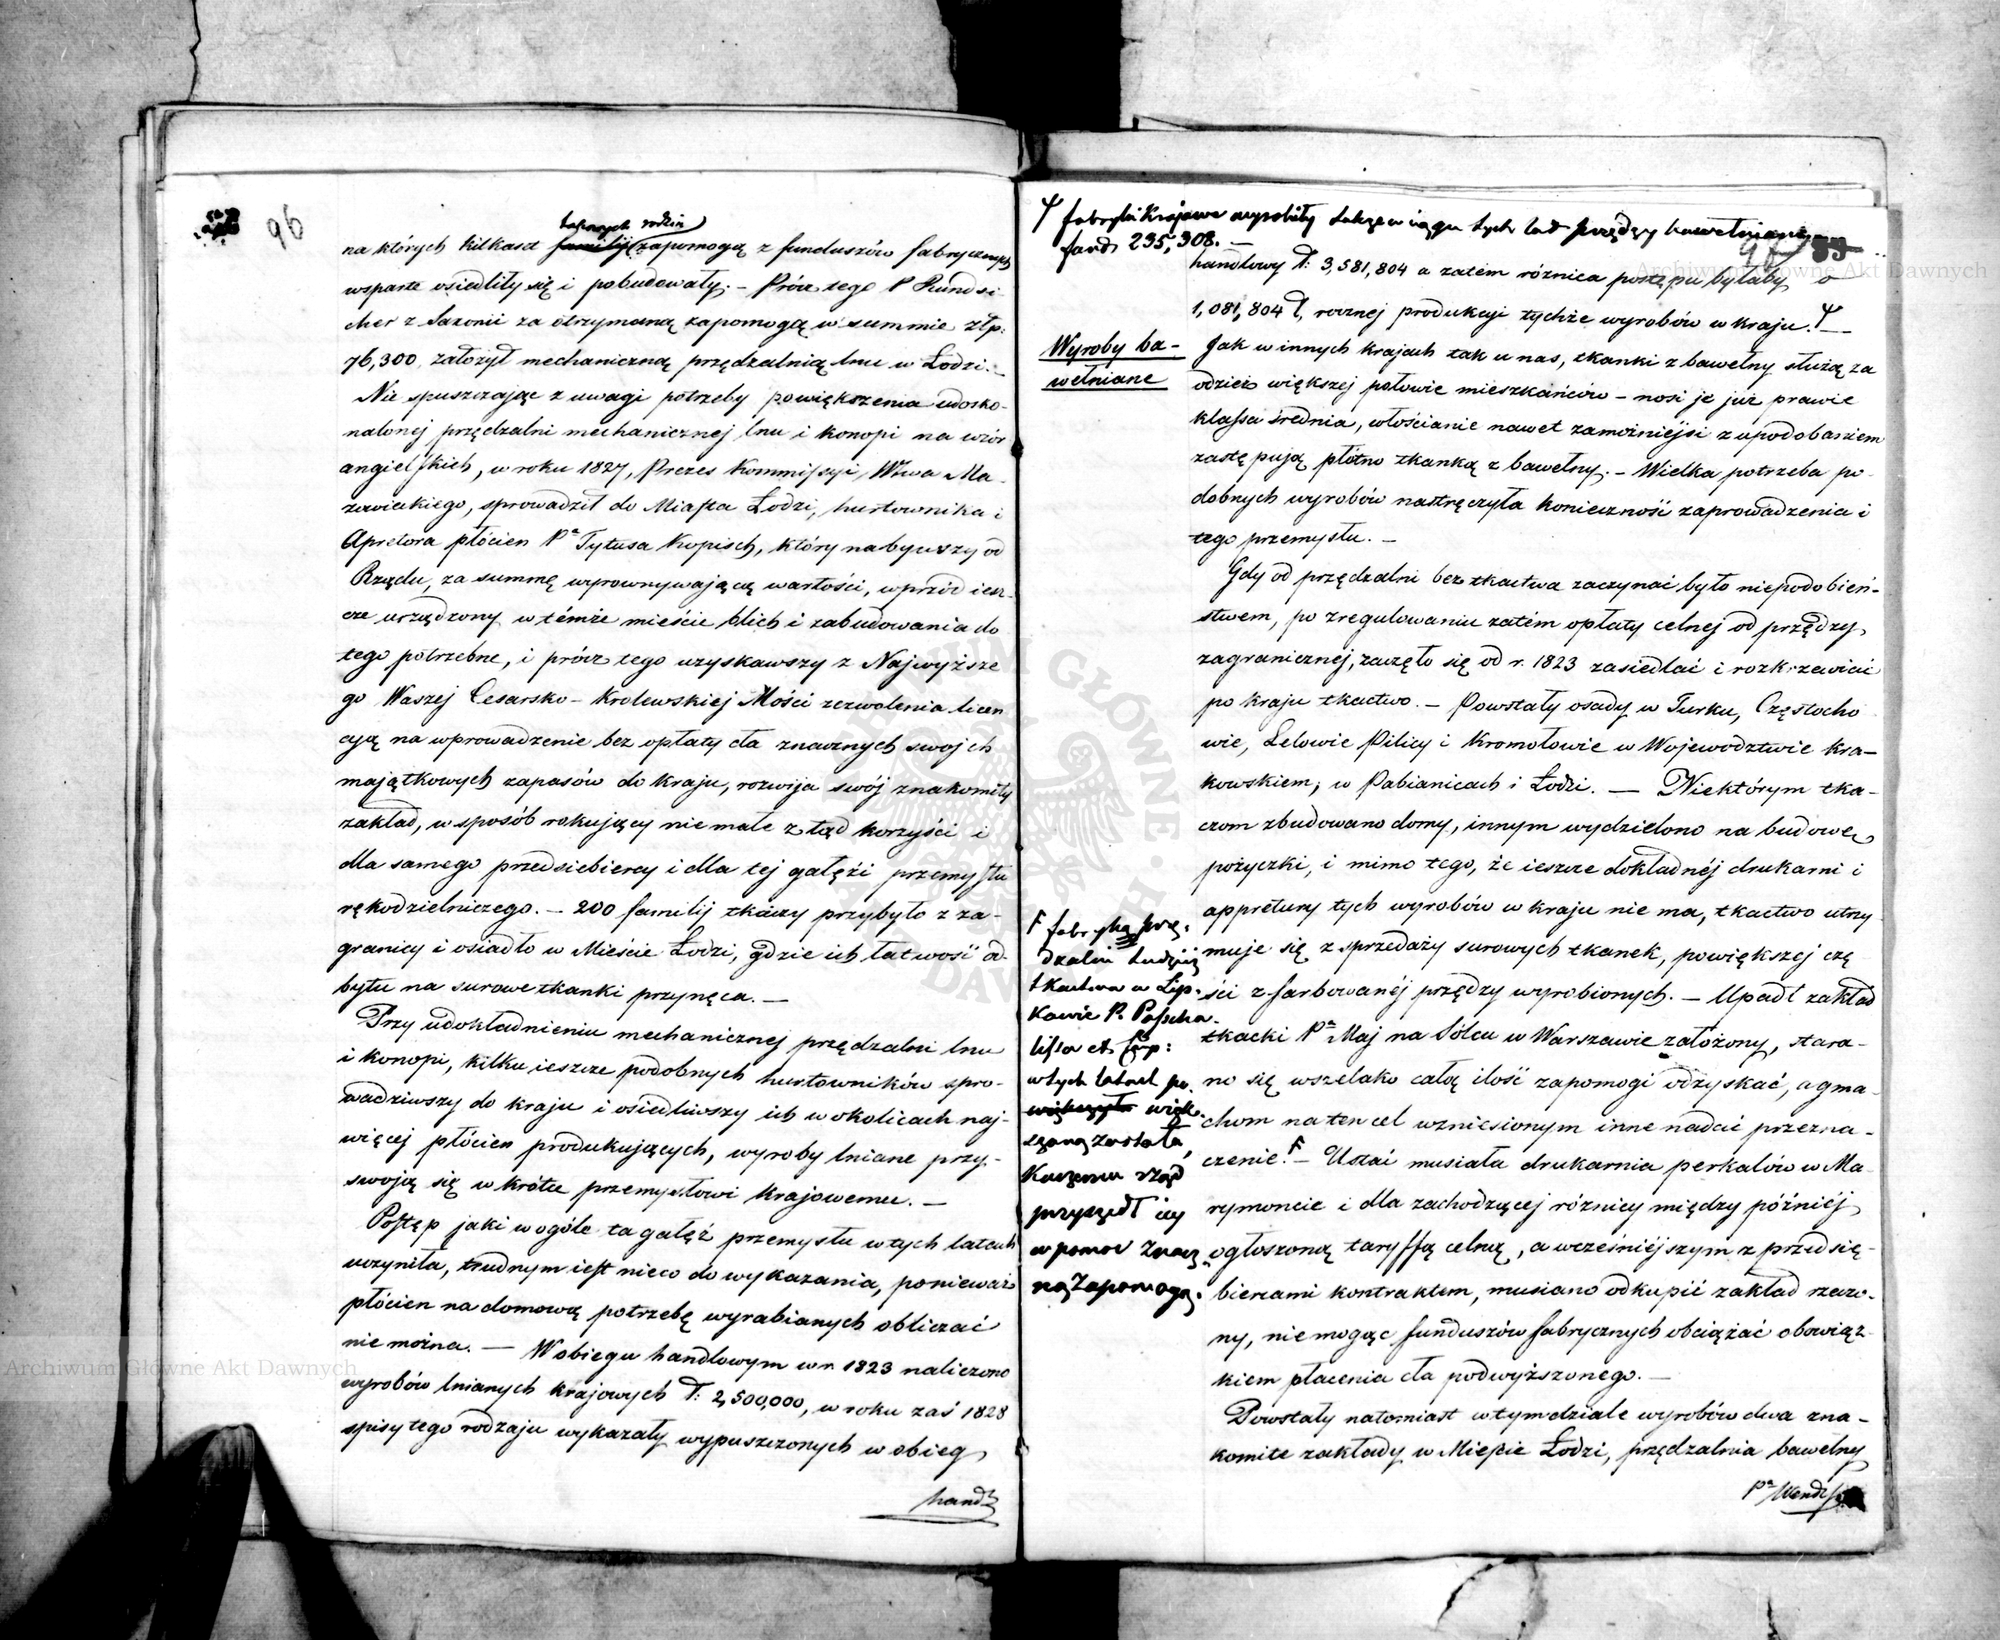 96
takowych rodzin
na których kilkaset familij zapomogą z funduszów fabrycznych
wsparte osiedliły się i pobudowały. – Prócz tego P Rundzi-
cher z Saxonii za otrzymaną zapomogą w summie złp:
76,300 założył mechaniczną przędzalnią lnu w Łodzi. –
Nie spuszczając z uwagi potrzeby powiększenia udosko-
nalonej przędzalni mechanicznej lnu i konopi na wzór
angielskich, w roku 1827, Prezes Kommissyi Wtwa Ma-
zowieckiego, sprowadził do Miasta Łodzi, hurtownika i
Apretora płócien Pa Tytusa Kopisch, który nabywszy od
Rządu, za summę wyrownywającą wartości, wprzód iesz-
cze urządzony w témże mieście blich i zabudowania do
tego potrzebne, i prócz tego uzyskawszy z Najwyższe
go Waszej Cesarsko-Krolewskiej Mości zezwolenia licen
cyą na wprowadzenie bez opłaty cła znacznych swoich
majątkowych zapasów do kraju, rozwija swój znakomity
zakład, w sposób rokujący nie małe z tąd korzyści i
dla samego przedsiebiercy i dla tej gałęźi przemysłu
rękodzielniczego. – 200 familij tkaczy przybyło z za-
granicy i osiadło w Mieście Łodzi, gdzie ich łatwość od-
bytu na surowe tkanki przynęca. –
Przy udokładnieniu mechanicznej przędzalni lnu
i konopi, kilku ieszcze podobnych hurtowników spro-
wadziwszy do kraju i osiedliwszy ich w okolicach naj-
więcej płócien produkujących, wyroby lniane przy-
swoją się w krótce przemysłowi krajowemu. –
Postęp jaki w ogóle ta gałęź przemysłu w tych latach
uczyniła, trudnym iest nieco do wykazania, ponieważ
płócien na domową potrzebę wyrabianych obliczać
nie można. – W obiegu handlowym w r. 1823 naliczono
wyrobów lnianych krajowych ₸: 2,500,000, w roku zaś 1828
spisy tego rodzaju wykazały wypuszczonych w obieg
hand
Ψ fabryki Krajowe wyrobiły także w ciągu tych lat przędzy bawełnianej
fund 295,308. –
97 53
handlowy ₸: 3,581,804 a zatém różnica postępu byłaby o
1,081,804 ₸, rocznej produkcyi tychże wyrobów w kraju. Ψ –
Wyroby ba-
wełniane
Jak w innych krajach tak u nas, tkanki z bawełny służą za
odzież większej połowie mieszkańców – nosi je już prawie
klassa średnia, włościanie nawet zamożniejsi z upodobaniem
zastępują płótno tkanką z bawełny. – Wielka potrzeba po-
dobnych wyrobów nastręczyła konieczność zaprowadzenia i
tego przemysłu. –
Gdy od przędzalni bez tkactwa zaczynać było niepodobień-
stwem, po zregulowaniu zatém opłaty celnej od przędzy
zagranicznéj, zaczęło się od r. 1823 zasiedlać i rozkrzewiać
po kraju tkactwo. – Powstały osady w Turku, Częstocho
wie, Lelowie Pilicy i Kromołowie w Wojewodztwie Kra-
kowskiem; w Pabianicach i Łodzi. – Niektórym tka-
czom zbudowano domy, innym wydzielono na budowę
pożyczki, i mimo tego, że ieszcze dokładnéj drukarni i
appretury tych wyrobów w kraju nie ma, tkactwo utrzy-
muje się z sprzedaży surowych tkanek, powiększej czę
ści z farbowanéj przędzy wyrobionych. – Upadł zakład
tkacki Pa Maj na Solcu w Warszawie założony, stara-
no się wszelako całą ilość zapomogi odzyskać, a gma-
chom na ten cel wzniesionym inne nadać przezna-
czenie. F – Ustać musiała drukarnia perkalów w Ma-
rymoncie i dla zachodzącej różnicy między późniéj
ogłoszoną taryffą celną, a wcześniéjszym z przedsię-
biercami kontraktem, musiano odkupić zakład rzeczo-
ny, nie mogąc funduszów fabrycznych obciążać obowiąz-
kiem płacenia cła podwyższonego. –
Powstały natomiast w tym dziale wyrobów dwa zna-
komite zakłady w Mieście Łodzi, przędzalnia bawełny
Pa Wendi
F fabryka przę-
dzalni tudzież
tkactwa w Lip-
kowie P. Pascha-
lisa et
w tych latach po-
więk-
szoną została,
Kaczemu rząd
przyszedł iey
w pomoc znacz
ną zapomogą.